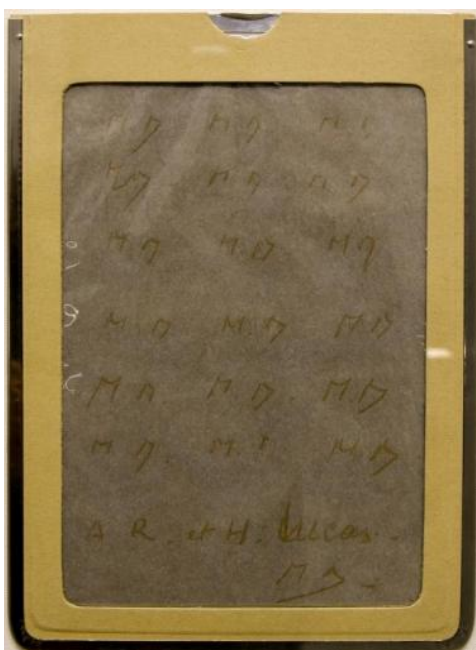 M D M D M D
M D M D M D
M D M D M D
M D M D M D
M D. M D. M D
M D. M. D M D
A R. et H. Lucas.
M D